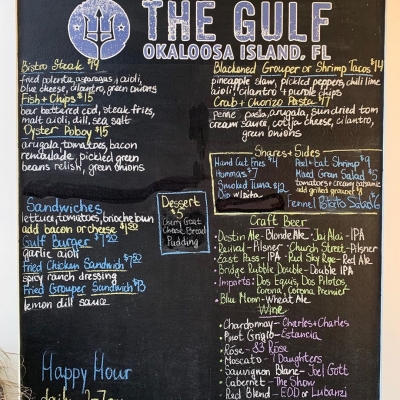 THE GULF
OKALOOSA ISLAND, FL
Bistro Steak $19
fried polenta, asparagus, aioli,
blue cheese, cilantro, green onions
Fish + Chips $15
beer battered cod, steak fries,
malt aioli, dill, sea salt
Oyster Poboy $15
arugala, tomatoes, bacon
remoulade, pickled green
beans relish, green onions
Blackened Grouper or Shrimp Tacos $14
pineapple slaw, pickled peppers, chili lime
aioli, cilantro + purple chips
Crab + Chorizo Pasta $17
penne pasta, arugala, sundried tom
cream sauce, cotija cheese, cilantro,
green onions
Shares + Sides
Hand Cut Fries $4
Hummus $7
Smoked Tuna $12
Dip w/ pita
Peel + Eat Shrimp $9
Mixed Green Salad $5
tomatoes + creamy balsamic
add grilled grouper $8
Fennel Potato Salad $6
Sandwiches
lettuce, tomatoes, brioche bun
add bacon or cheese $1.50
Gulf Burger $7.50
garlic aioli
Fried Chicken Sandwich $7.50
spicy ranch dressing
Fried Grouper Sandwich $13
lemon dill sauce
Dessert
$5
Cherry Goat
Cheese Bread
Pudding
Craft Beer
• Destin Ale - Blonde Ale • Jai Alai - IPA
• Pilsner • Church Street - Pilsner
• East Pass - IPA • Red Sky Rye - Red Ale
• Bridge Rubble Double - Double IPA
• Imports: Dos Equis, Dos Pilotos,
Corona, Corona Premier
• Blue Moon - Wheat Ale
Wine
• Chardonnay - Charles + Charles
• Pinot Grigio - Estancia
• Rose - 83 Rose
• Moscato - 7 Daughters
• Sauvignon Blanc - Joel Gott
• Cabernet - The Show
• Red Blend - EOD or Lubanzi
Happy Hour
daily